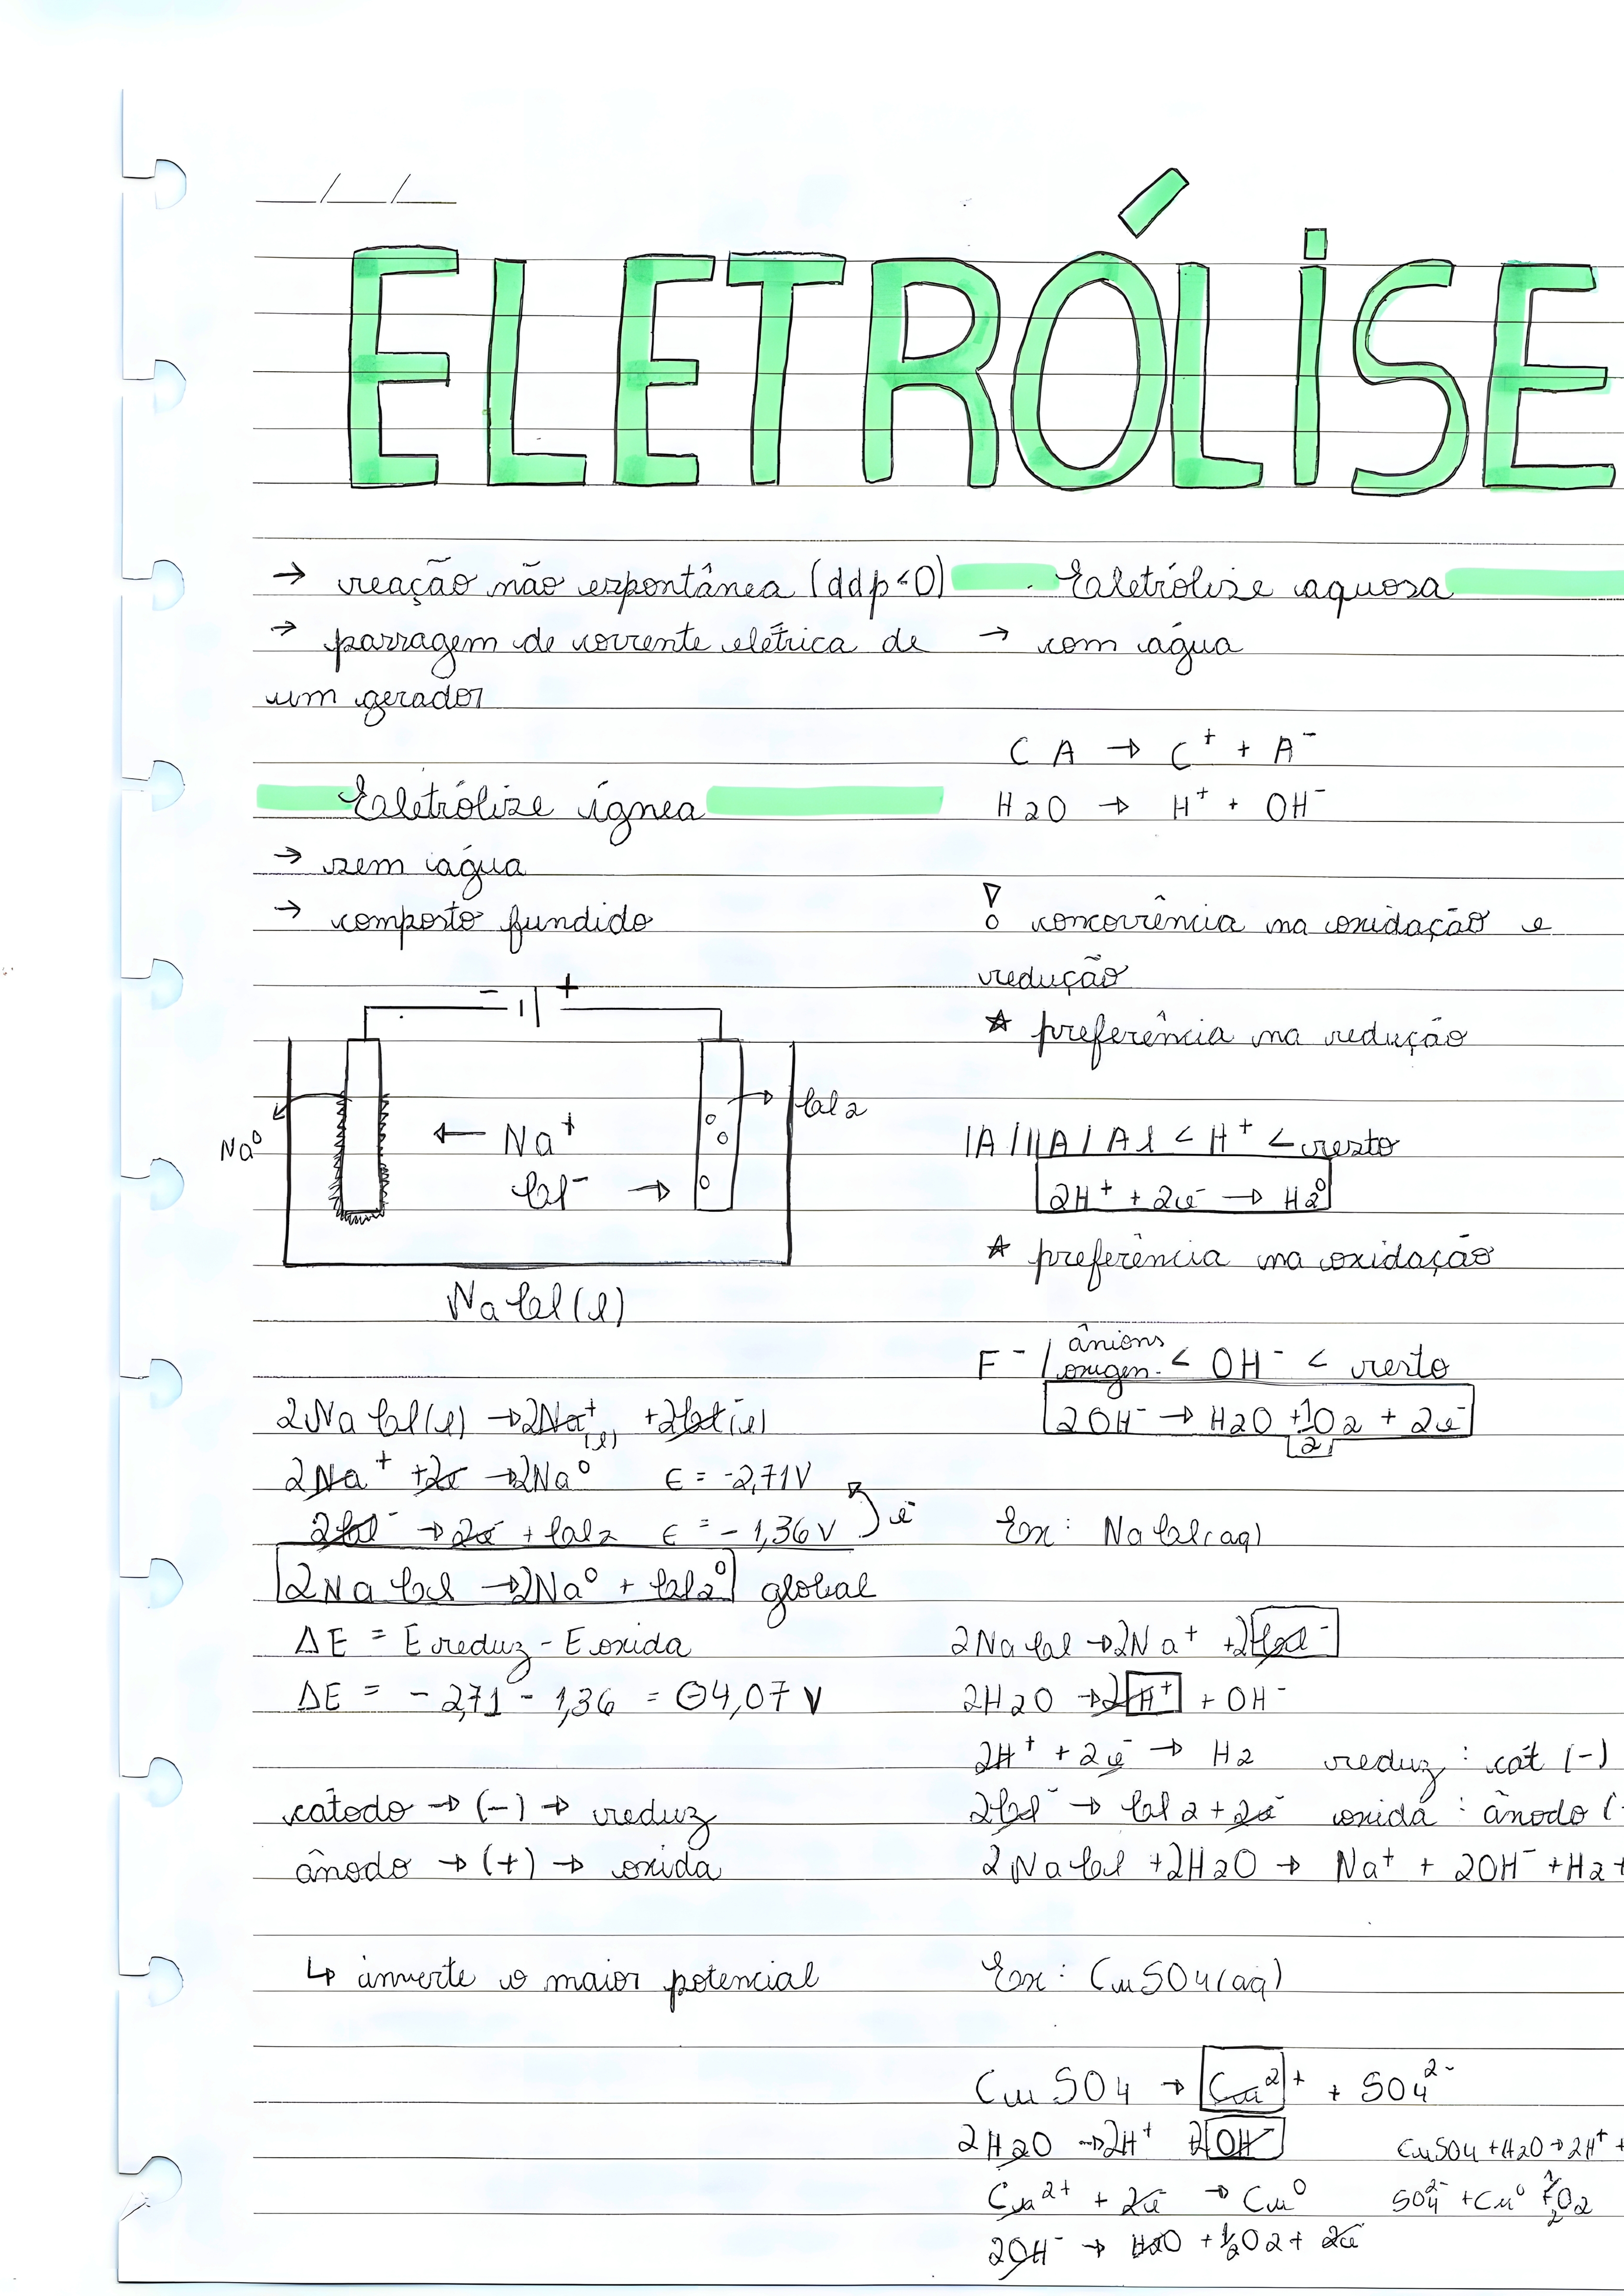 ELETRÓLISE
→ reação não espontânea (ddp<0)
→ passagem de corrente elétrica de
um gerador
Eletrólise ígnea
→ sem água
→ composto fundido
- +
Na⁰
← Na⁺
Cl⁻ →
→ Cl2
NaCl(l)
2NaCl(l) → 2Na⁺(l) + 2Cl⁻(l)
2Na⁺ + 2e⁻ → 2Na⁰ E = -2,71V
2Cl⁻ → 2e⁻ + Cl2 E = -1,36V e⁻
2NaCl → 2Na⁰ + Cl2⁰ global
ΔE = Ereduz - Eoxida
ΔE = -2,71 - 1,36 = -4,07 V
cátodo → (-) → reduz
ânodo → (+) → oxida
↳ inverte o maior potencial
Eletrólise aquosa
→ com água
CA → C⁺ + A⁻
H2O → H⁺ + OH⁻
concorrência na oxidação e
redução
★ preferência na redução
IA/IIA/Al < H⁺ < resto
2H⁺ + 2e⁻ → H2⁰
★ preferência na oxidação
F⁻/ânions oxigen. < OH⁻ < resto
2OH⁻ → H2O + 1/2 O2 + 2e⁻
Ex: NaCl(aq)
2NaCl → 2Na⁺ + 2Cl⁻
2H2O → 2H⁺ + OH⁻
2H⁺ + 2e⁻ → H2 reduz: cát (-)
2Cl⁻ → Cl2 + 2e⁻ oxida: ânodo (
2NaCl + 2H2O → Na⁺ + 2OH⁻ + H2 +
Ex: CuSO4(aq)
CuSO4 → Cu²⁺ + SO4²⁻
2H2O → 2H⁺ + 2OH⁻
Cu²⁺ + 2e⁻ → Cu⁰
2OH⁻ → H2O + 1/2 O2 + 2e⁻
CuSO4 + H2O → 2H⁺ +
SO4²⁻ + Cu⁰ + 1/2 O2